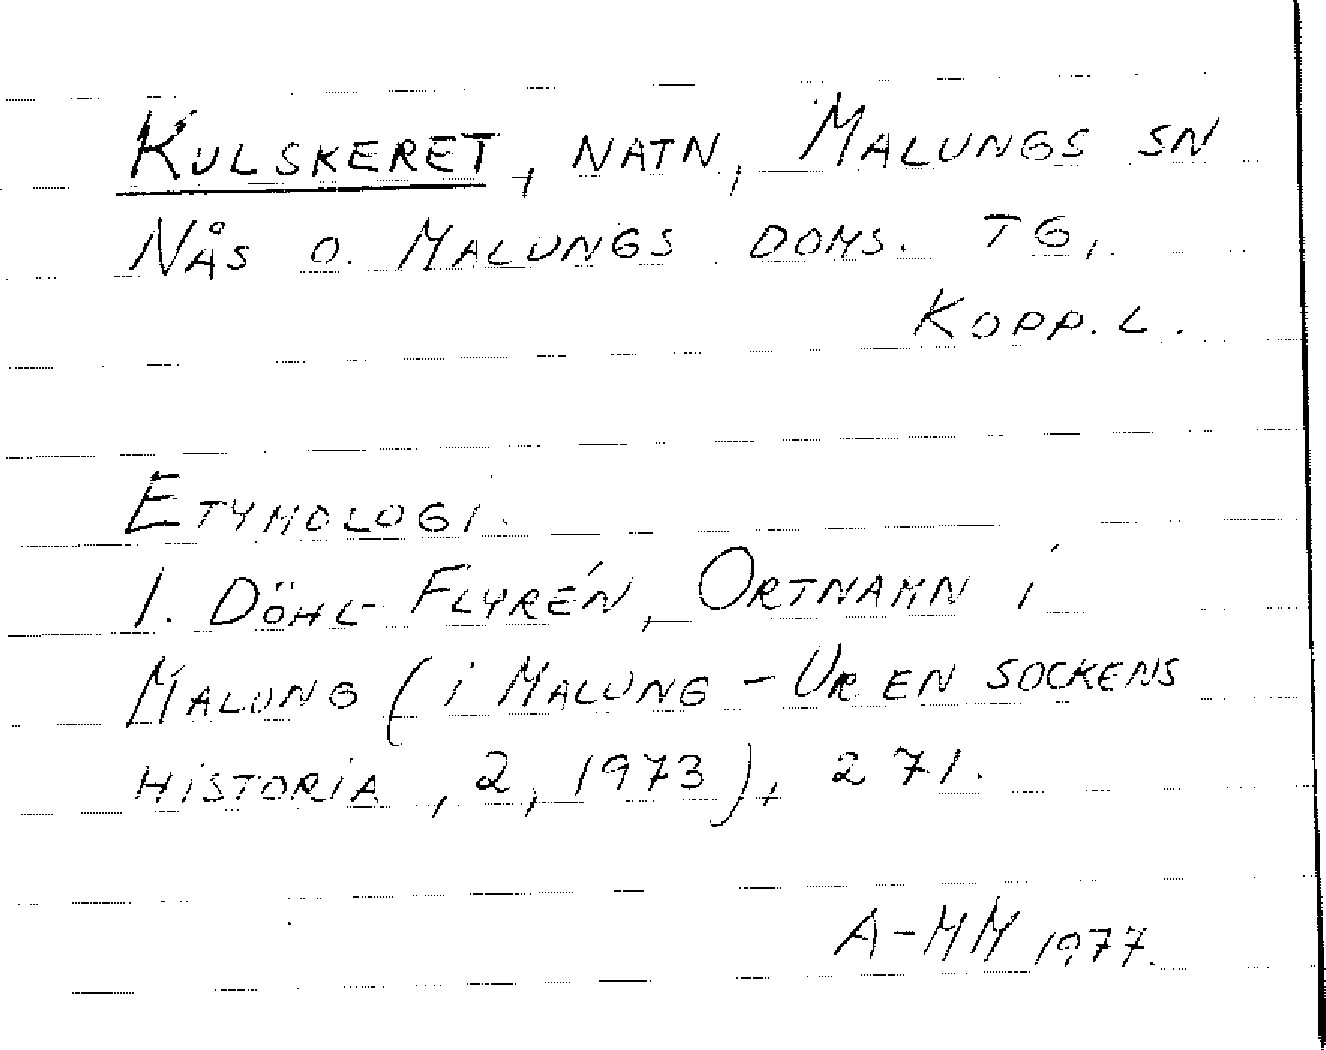 KULSKERET, NATN, MALUNGS SN
NÅS O. MALUNGS DOMS. TG,
KOPP. L.
ETYMOLOGI.
I. DÖHL-FLYRÉN, ORTNAMN I
MALUNG (I MALUNG - UR EN SOCKENS
HISTORIA, 2, 1973), 271.
A-MM 1977.